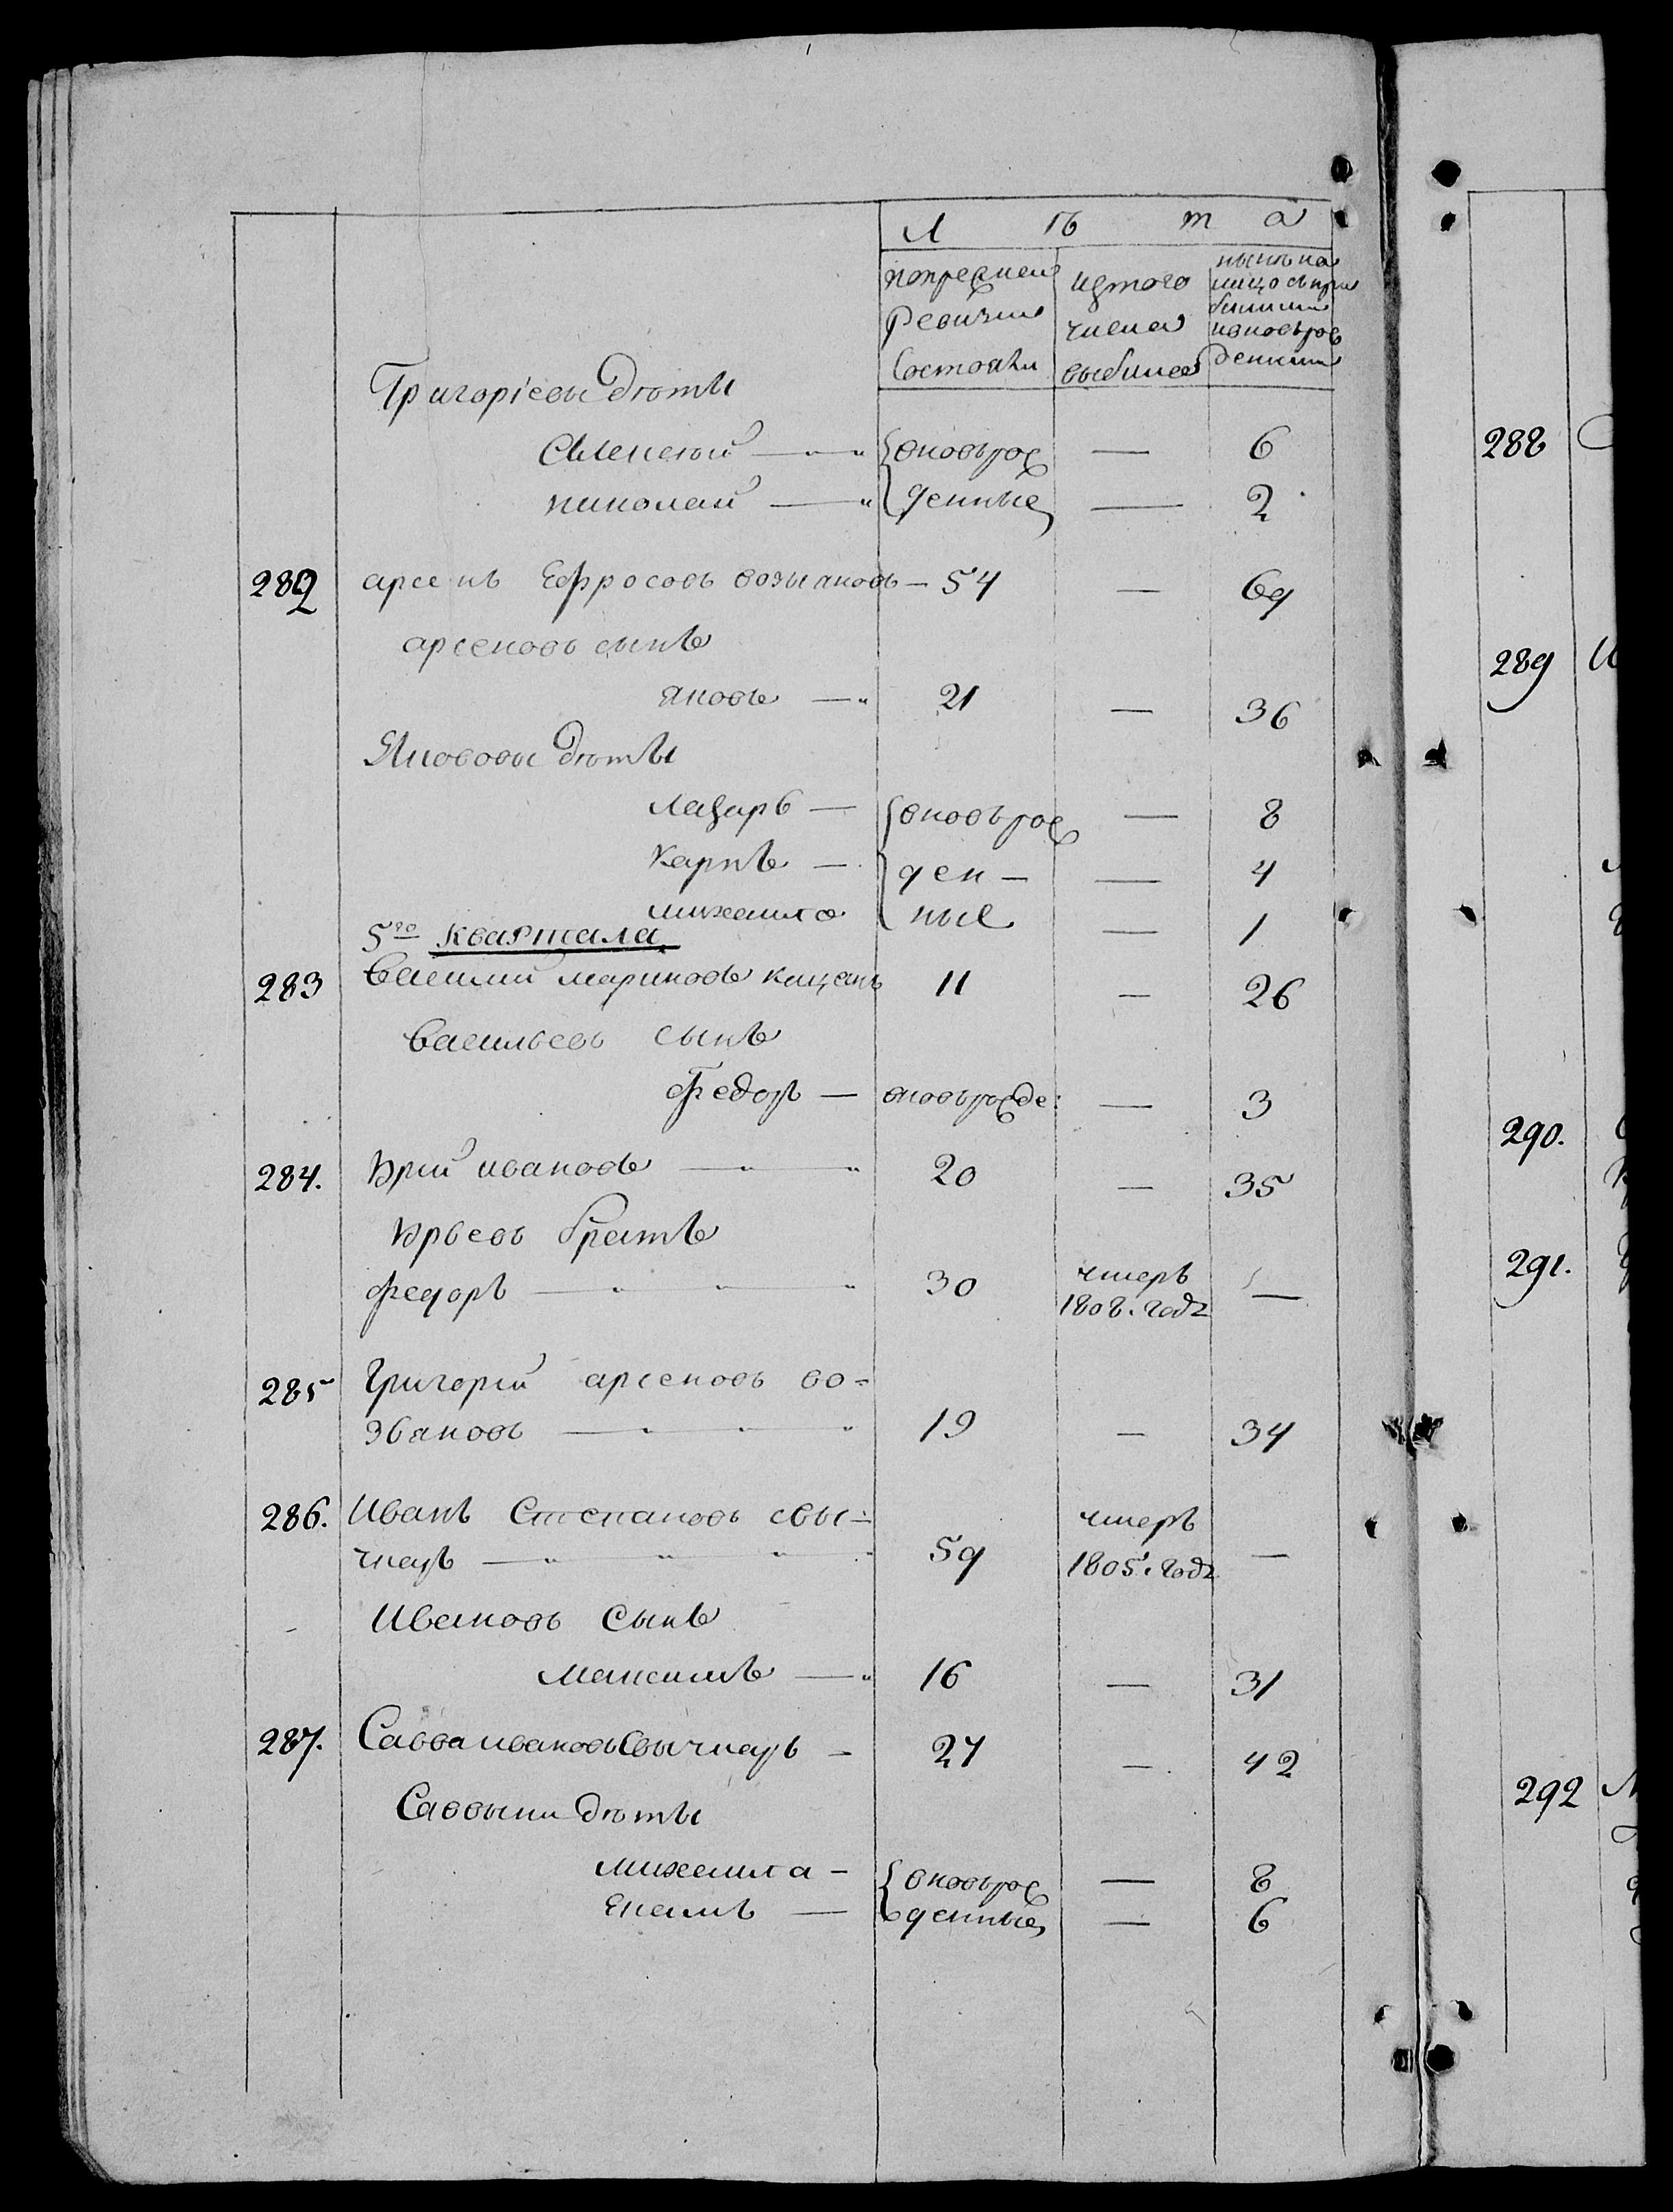 Л ѣ т а
попрежней ревизіи состояли
изтого числа выбыло
нынѣ на лицо съ прибылыми и вновь рожденными
Григоріевы дѣти
Евменей — вновьрож — 6
николай — денные — 2
282 арсенъ Ефросовъ возыановъ — 54 — 69
арсеновъ сынъ
яковъ — 21 — 36
Якововы дѣти
Лазарь — вновьрож — 8
Карпъ — ден- — 4
михаила ные — 1
5го квартала
283 Василий мариновъ 11 — 26
Васильевъ сынъ
Федоръ — вновьрожде: — 3
284. Юрий ивановъ — 20 — 35
Юрьевъ братъ
федоръ — 30 умеръ 1808. года —
285 Григорий арсеновъ во-
зыановъ — 19 — 34
286. Иванъ Степановъ свы-
чкарь — 59 умеръ 1805. года —
Ивановъ Сынъ
Максимъ — 16 — 31
287. Савва ивановъ Свычкарь — 27 — 42
Саввины дѣти
михаила — вновьрож — 8
Екимъ — денные — 6
288
289
290.
291.
292